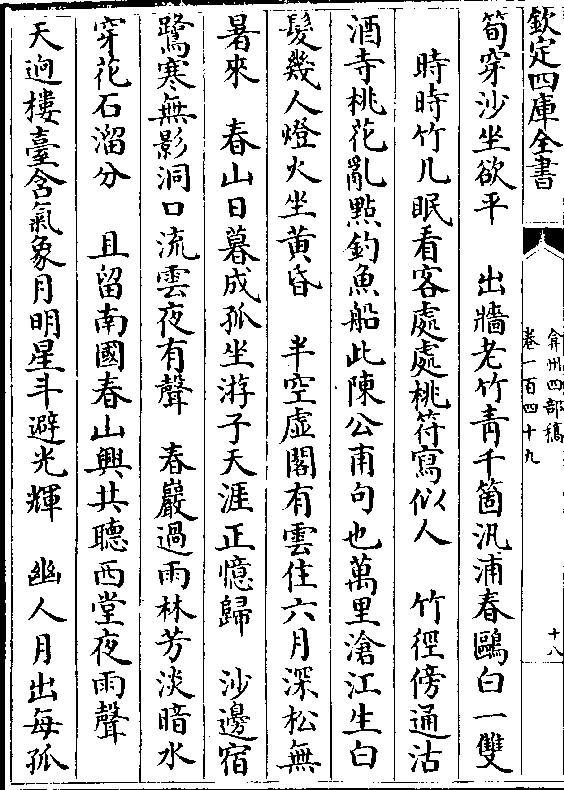 欽定四庫全書
弇州四部稿
卷一百四十九
十八
筍穿沙坐欲平　出牆老竹青千箇汎浦春鷗白一雙
時時竹几眠看客處處桃符寫似人　竹徑傍通沽
酒寺桃花亂點釣魚船此陳公甫句也萬里滄江生白
髮幾人燈火坐黃昏　半空虛閣有雲住六月深松無
暑來　春山日暮成孤坐游子天涯正憶歸　沙邊宿
鷺寒無影洞口流雲夜有聲　春巖過雨林芳淡暗水
穿花石溜分　且留南國春山興共聽西堂夜雨聲
天迥樓臺含氣象月明星斗避光輝　幽人月出每孤